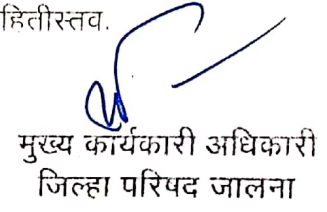 हितीस्तव.
मुख्य कार्यकारी अधिकारी
जिल्हा परिषद जालना